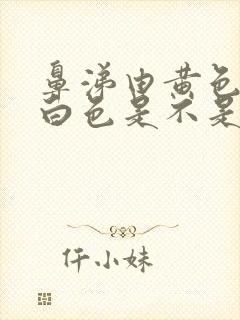 鼻涕由黄色
白色是不是
仟小妹